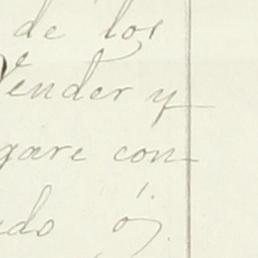 de los
Vender y
gare con-
edo ó